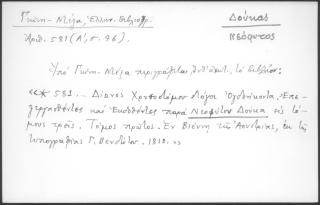 Γκίνη - Μέξα, Ἑλλην. Βιβλιογρ.
Δούκας
Ἀριθ. 581 (Α', σ. 96).
Νεόφυτος
Ὑπό Γκίνη - Μέξα περιγράφεται, ὑπ' ἀριθ., τό βιβλίον:
«* 581. - Δίωνος Χρυσοστόμου Λόγοι Ὀγδοήκοντα. Ἐπε-
ξεργασθέντες καί Ἐκδοθέντες παρά Νεοφύτου Δούκα εἰς τό-
μους τρεῖς. Τόμος πρῶτος. Ἐν Βιέννῃ τῆς Αουστρίας, ἐκ τῆς
τυπογραφίας Γ. Βενδότου. 1810.»